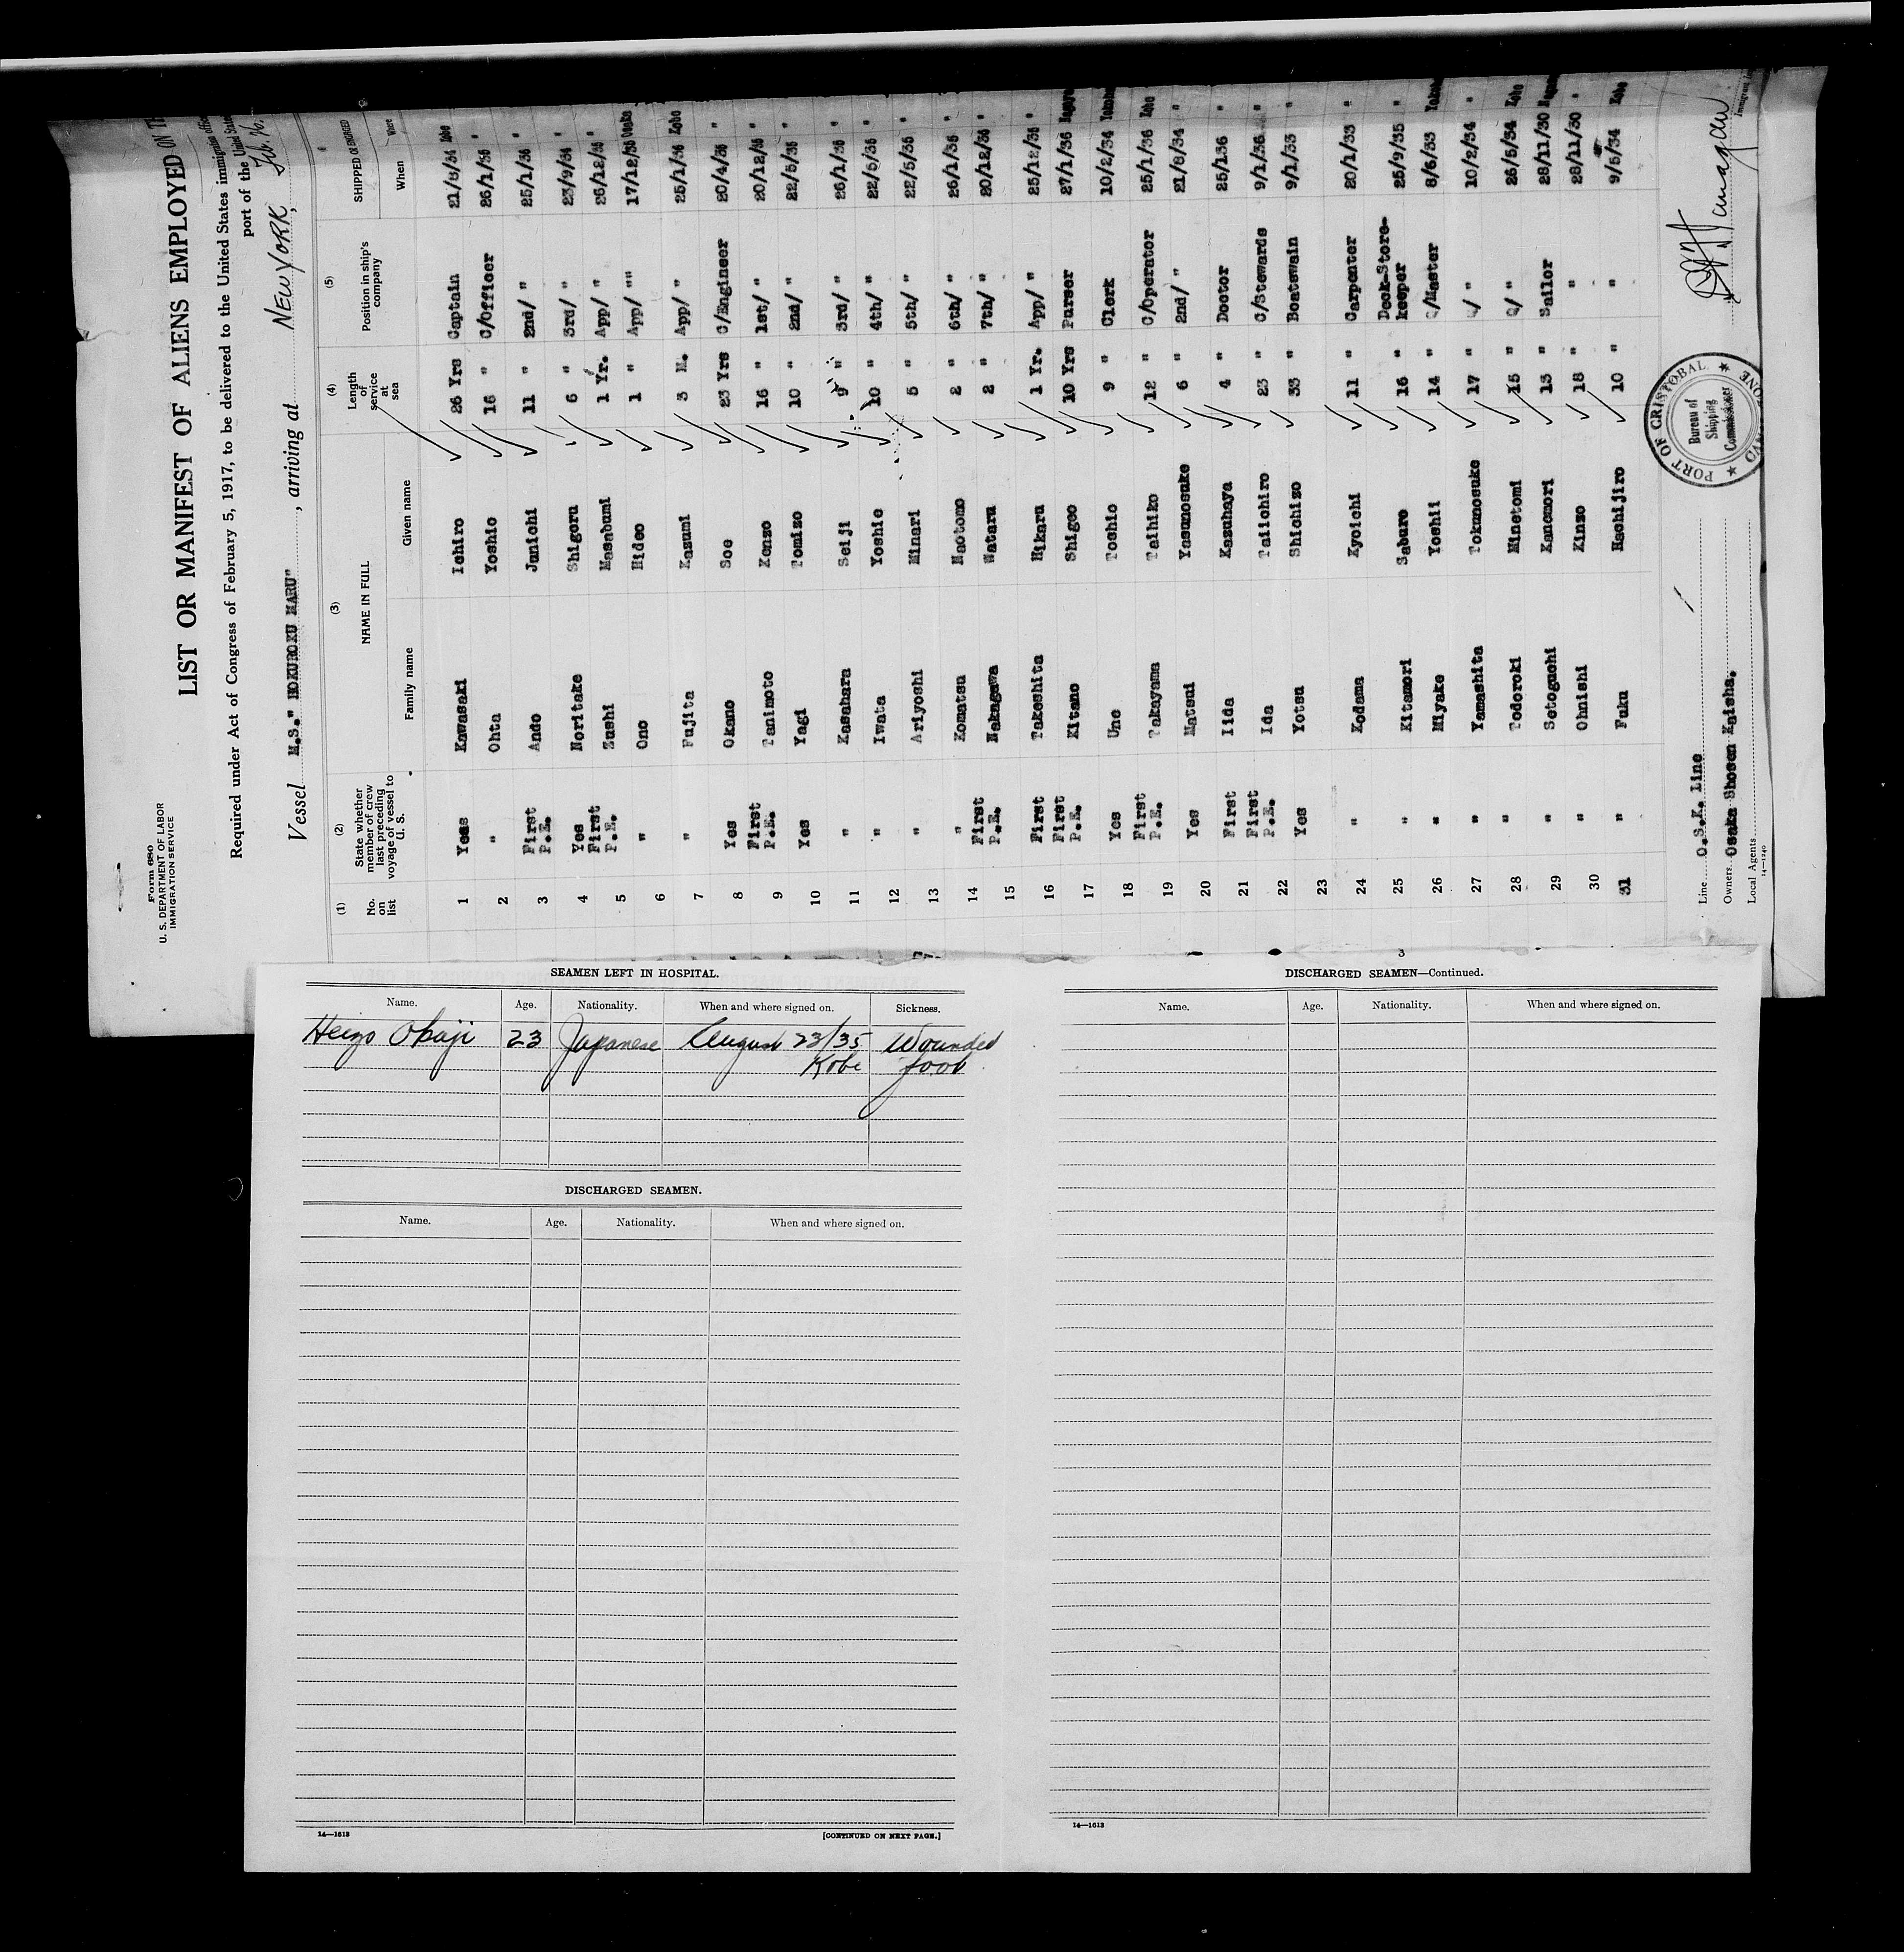 Form 680
U. S. DEPARTMENT OF LABOR
IMMIGRATION SERVICE
LIST OR MANIFEST OF ALIENS EMPLOYED ON
Required under Act of Congress of February 5, 1917, to be delivered to the United States immigration
port of the United States
Vessel M.S." HOKUROKU MARU" , arriving at NEW YORK, Feb. 16.
(1) (2) (3) (4) (5)
No. on list
State whether member of crew last preceding voyage of vessel to U. S.
NAME IN FULL
Family name Given name
Length of service at sea
Position in ship's company
SHIPPED OR ENGAGED
When Where
1 Yes Kawasaki Ichiro 26 Yrs Captain 21/8/34 Kobe
2 " Ohta Yoshio 16 " C/Officer 26/1/36 "
3 First P.E. Ando Junichi 11 " 2nd/ " 25/1/36 "
4 Yes Noritake Shigeru 6 " 3rd/ " 23/9/34 "
5 First P.E. Zushi Masabumi 1 Yr. App/ " 26/12/35 "
6 " Ono Hideo 1 " App/ "" 17/12/35 Osaka
7 " Fujita Kazumi 3 M. App/ " 25/1/36 Kobe
8 Yes Okano Soe 23 Yrs C/Engineer 20/4/35 "
9 First P.E. Tanimoto Kenzo 16 " 1st/ " 20/12/35 "
10 Yes Yagi Tomizo 10 " 2nd/ " 22/5/35 "
11 " Kasahara Seiji 9 " 3rd/ " 26/1/35 "
12 " Iwata Yoshio 10 " 4th/ " 22/5/35 "
13 " Ariyoshi Minari 5 " 5th/ " 22/5/35 "
14 " Komatsu Naotomo 2 " 6th/ " 26/1/35 "
15 First P.E. Nakagawa Wataru 2 " 7th/ " 20/12/35 "
16 First Takeshita Hikaru 1 Yr. App/ " 25/12/35 "
17 First P.E. Kitano Shigeo 10 Yrs Purser 27/1/36
18 Yes Uno Toshio 9 " Clerk 10/2/34
19 First P.E. Takayama Taihiko 12 " C/Operator 25/1/36 Kobe
20 Yes Matsui Yasunosuke 6 " 2nd/ " 21/8/34 "
21 First Iida Kazuhaya 4 " Doctor 25/136 "
22 First P.E. Ida Taiichiro 23 " C/Stewards 9/1/36 "
23 Yes Yotsu Shichizo 33 " Boatswain 9/1/33 "
24 " Kodama Kyoichi 11 " Carpenter 20/1/33 "
25 " Kitamori Saburo 16 " Deck-Store-keeper 25/9/35 "
26 " Miyake Yoshii 14 " Q/Master 8/6/33
27 " Yamashita Tokunosuke 17 " Q/ " 10/2/34 "
28 " Todoroki Minetomi 15 " Q/ " 26/5/34 Kobe
29 " Setoguchi Kanemori 13 " Sailor 28/11/30
30 " Ohnishi Kinzo 18 " " 28/11/30 "
31 " Fuku Hachijiro 10 " " 9/5/34 Kobe
Line O.S.K. Line
Owners Osaka Shosen Kaisha.
Local Agents
14—1240
PORT OF CRISTOBAL
Bureau of
Shipping
Commissioner
SEAMEN LEFT IN HOSPITAL.
Name. Age. Nationality. When and where signed on. Sickness.
Heizo Okuji 23 Japanese August 23/35 Wounded
Kobe foot
DISCHARGED SEAMEN.
Name. Age. Nationality. When and where signed on.
14—1613
[CONTINUED ON NEXT PAGE.]
DISCHARGED SEAMEN—Continued.
Name. Age. Nationality. When and where signed on.
14—1613